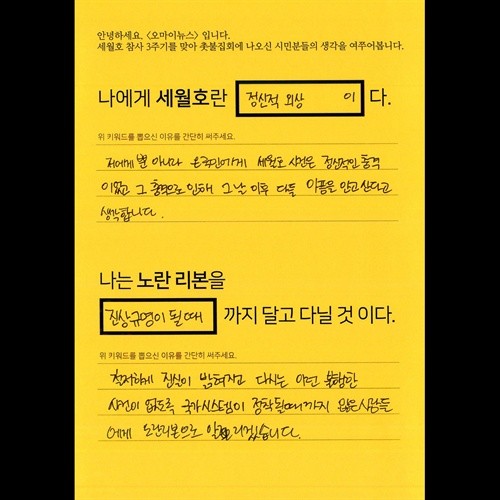 안녕하세요. <오마이뉴스> 입니다.
세월호 참사 3주기를 맞아 촛불집회에 나오신 시민분들의 생각을 여쭈어봅니다.
나에게 세월호란 정신적 외상 이 다.
위 키워드를 뽑으신 이유를 간단히 써주세요.
저에게 뿐 아니라 온국민에게 세월호 사건은 정신적인 충격
이었고 그 충격으로 인해 그날 이후 다들 아픔을 안고 산다고
생각합니다.
나는 노란 리본을
진상규명이 될 때 까지 달고 다닐 것 이다.
위 키워드를 뽑으신 이유를 간단히 써주세요.
철저하게 진실이 밝혀지고 다시는 이런 참혹한
사건이 없도록 국가시스템이 정착될때까지 많은사람들
에게 노란리본으로 알리겠습니다.